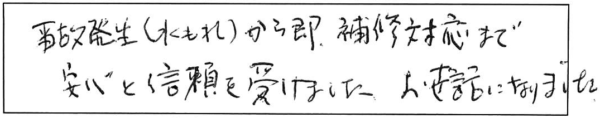 事故発生(水もれ)から即、補修対応まで
安心と信頼を受けました お世話になりました